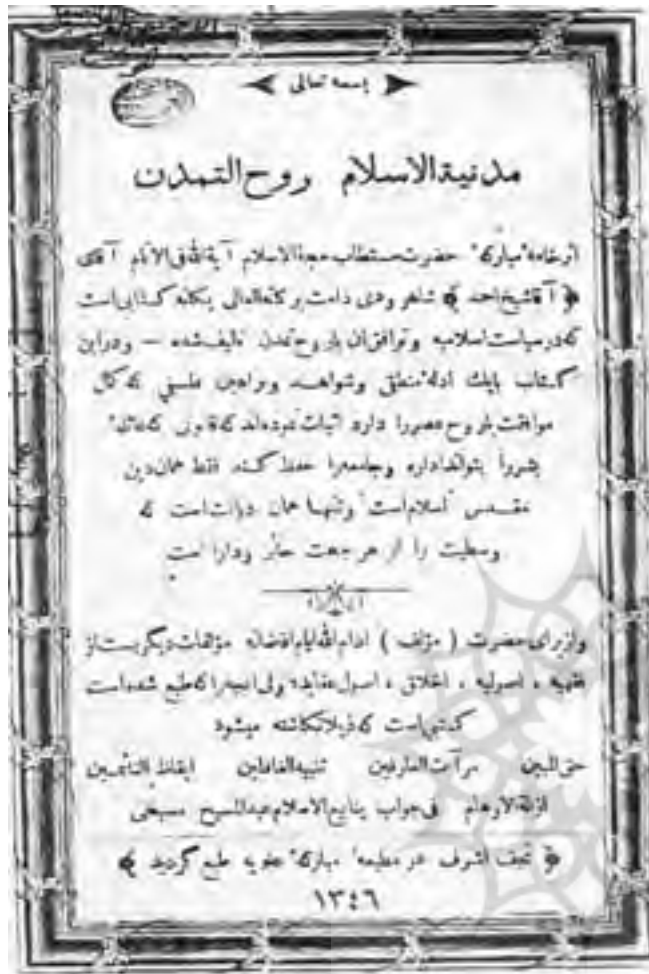 باسمه تعالی
مدنیةالاسلام روح التمدن
از خامهٔ مبارکهٔ حضرت مستطاب حجةالاسلام آیةالله فی الانام آقای
﴿ آقاشیخ احمد ﴾ شاهرودی دامت برکاته العالی یگانه کتابی است
که در سیاست اسلامیه و توافق آن با روح تمدن تالیف شده — و در این
کتاب بایک ادلهٔ منطقی و شواهد و براهین فلسفی که کمال
موافقت با روح عصر را دارد اثبات نموده‌اند که قانونی که عائلهٔ
بشر را بتواند اداره و جامعه را حفظ کند فقط همان دین
مقدس اسلام است وتنها همان دیانت است که
وسطیت را از هر جهت حائز و دارا است
و از برای حضرت ( مؤلف ) ادام الله ایام افضاله مؤلفات دیگریست از
فقهیه ، اصولیه ، اخلاق ، اصول عقاید ولی آنچه را که طبع شده است
کتبی است که ذیلا نگاشته میشود
حق المبین مرآت العارفین تنبیه الغافلین ایقاظ النائمین
ازالةالاوهام فی جواب ینابیع الاسلام عبدالمسیح مسیحی
﴿ نجف اشرف در مطبعهٔ مبارکهٔ علویه طبع گردید ﴾
١٣٤٦